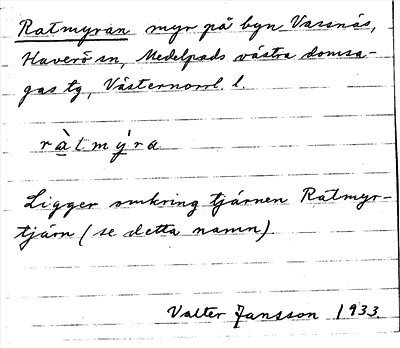 Ratmyran myr på byn Vassnäs,
Haverö sn, Medelpads västra domsa-
gas tg, Västernorrl. l.
ràtmy̌ra
Ligger omkring tjärnen Ratmyr-
tjärn (se detta namn)
Valter Jansson 1933.